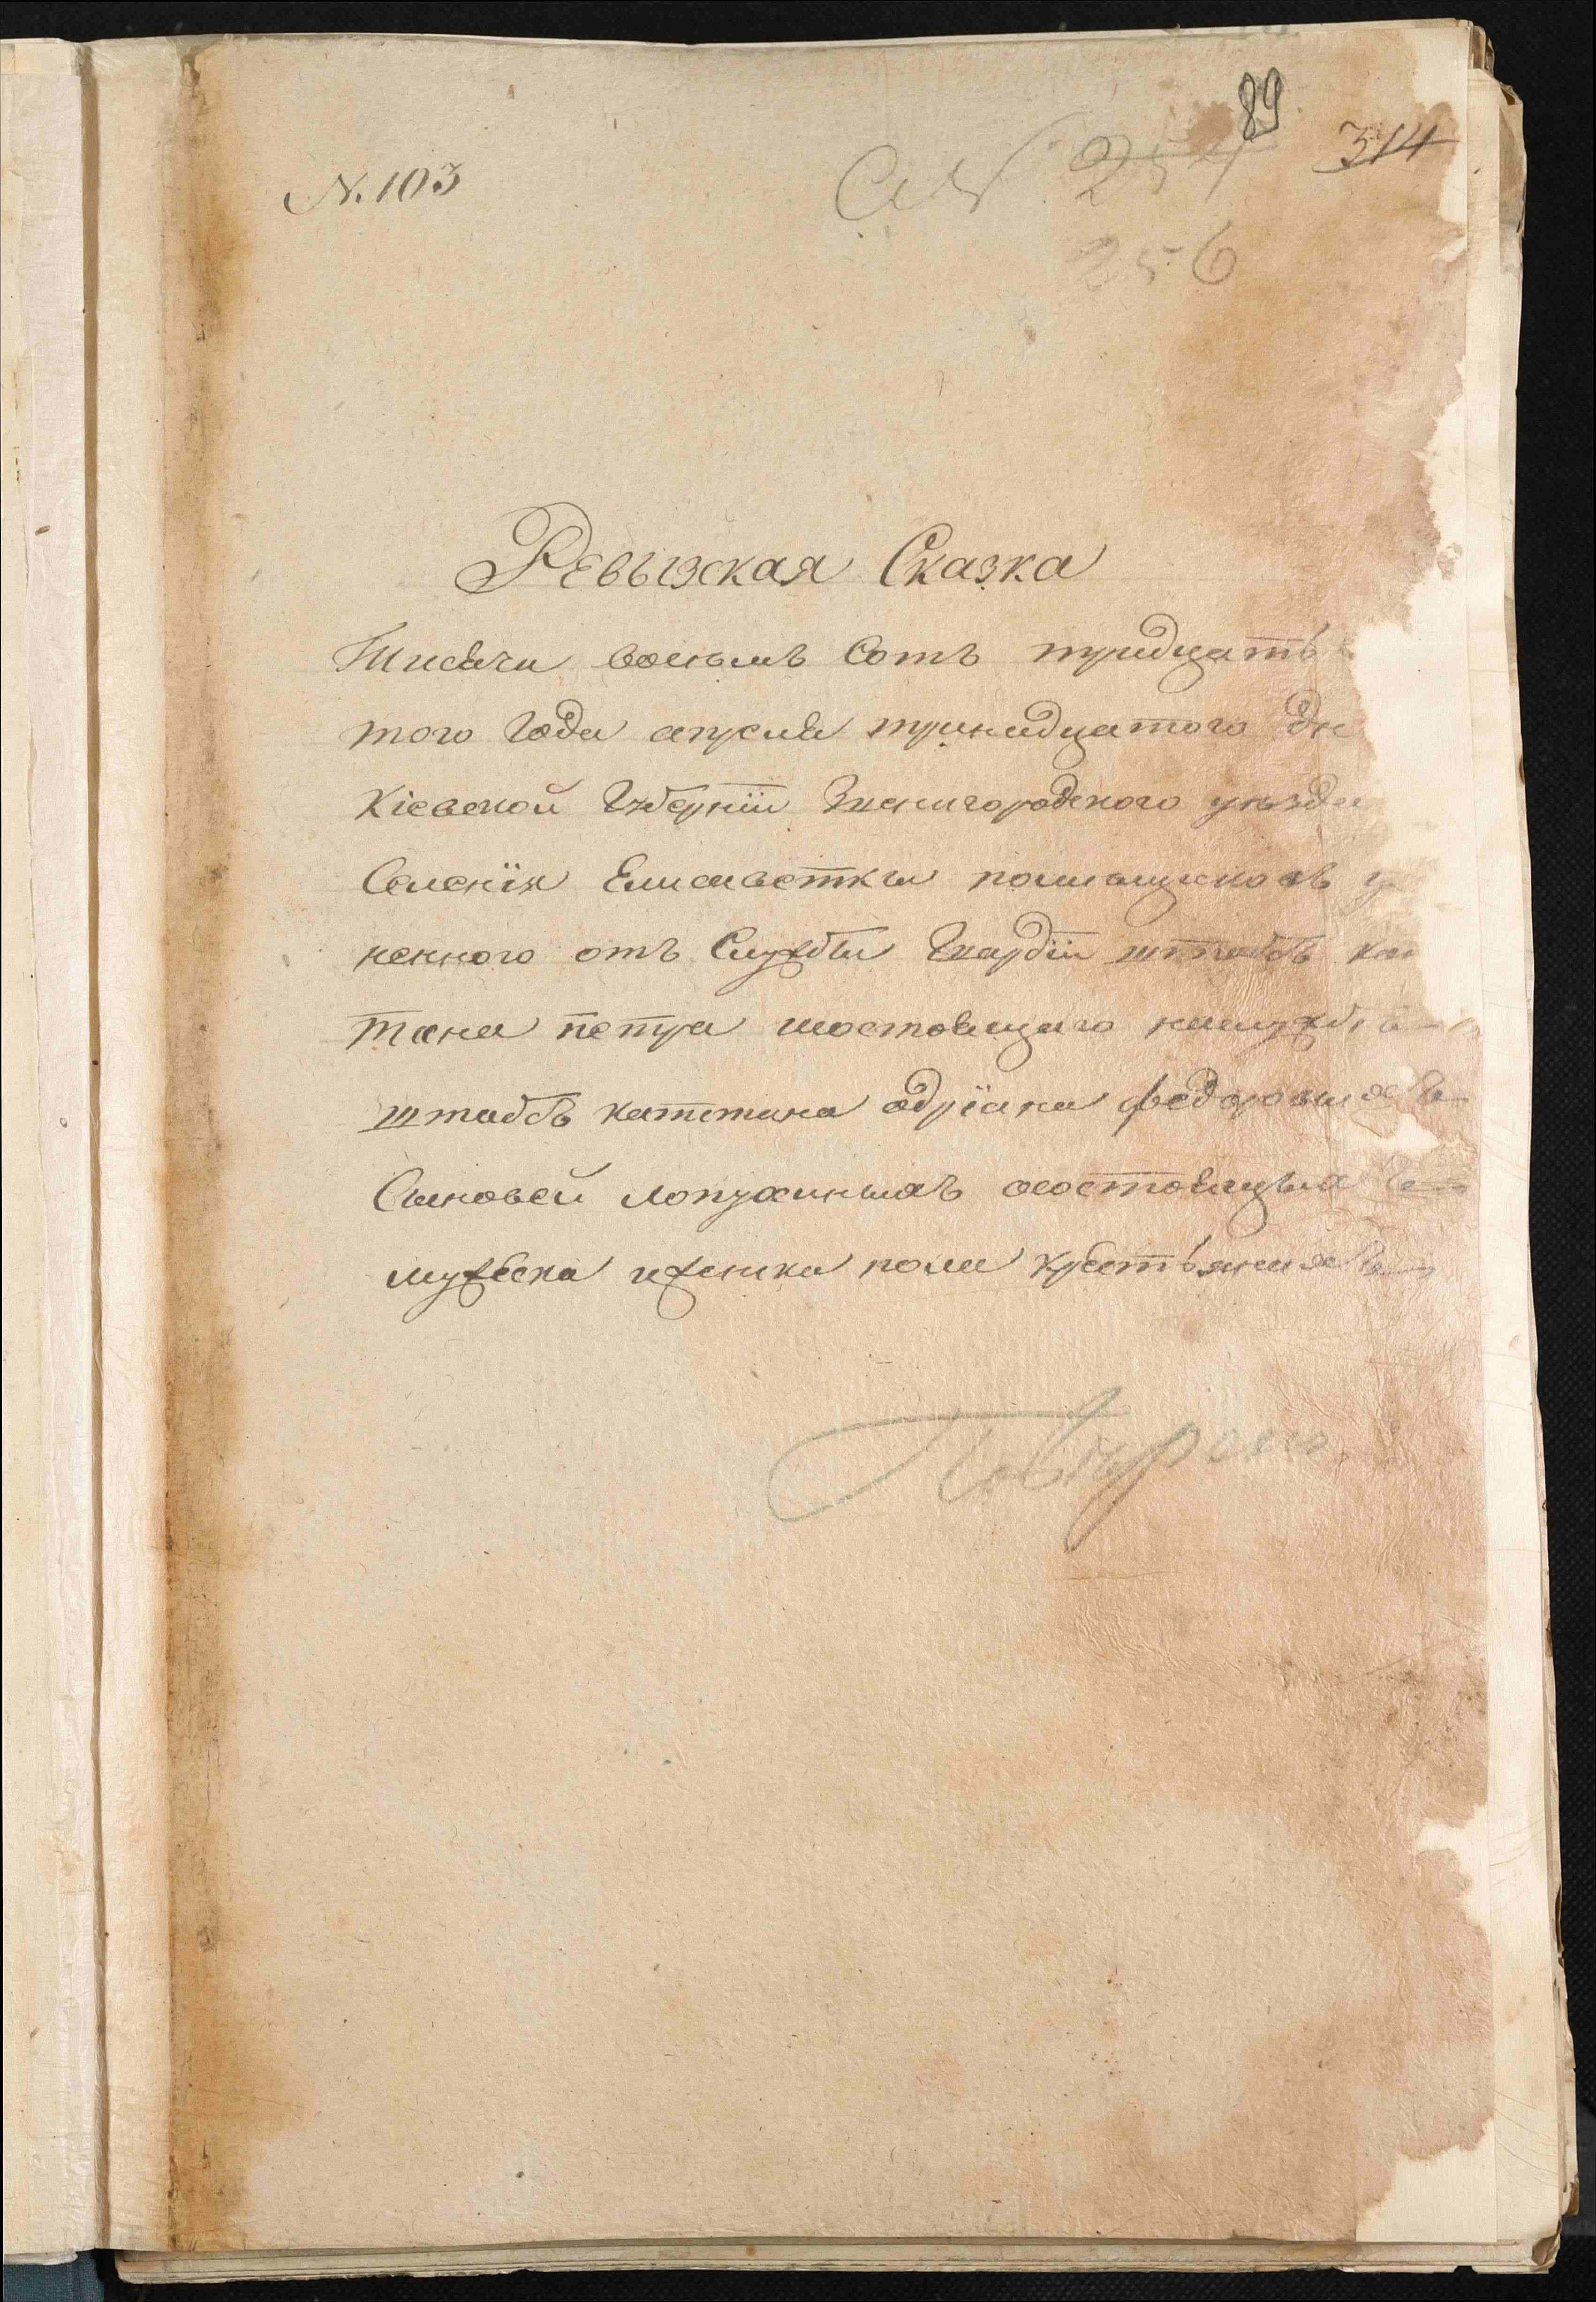 89
314
N. 103
254
256
Ревызская Сказка
Тисячи восьмъ Сотъ тридцать
того Года апреля тринадцатого дн
Кіевской Губерніи Звенигородского уезда
Селенія Елисаветки помѣщиковъ у
ненного отъ Службы Гвардіи штабсъ ка
тана петра и состоящаго на службѣ
штабсъ капитана адріана федоровыхъ
Сыновей лопухиныхъ о состоящыхъ
мужеска и женска пола крестьянахъ